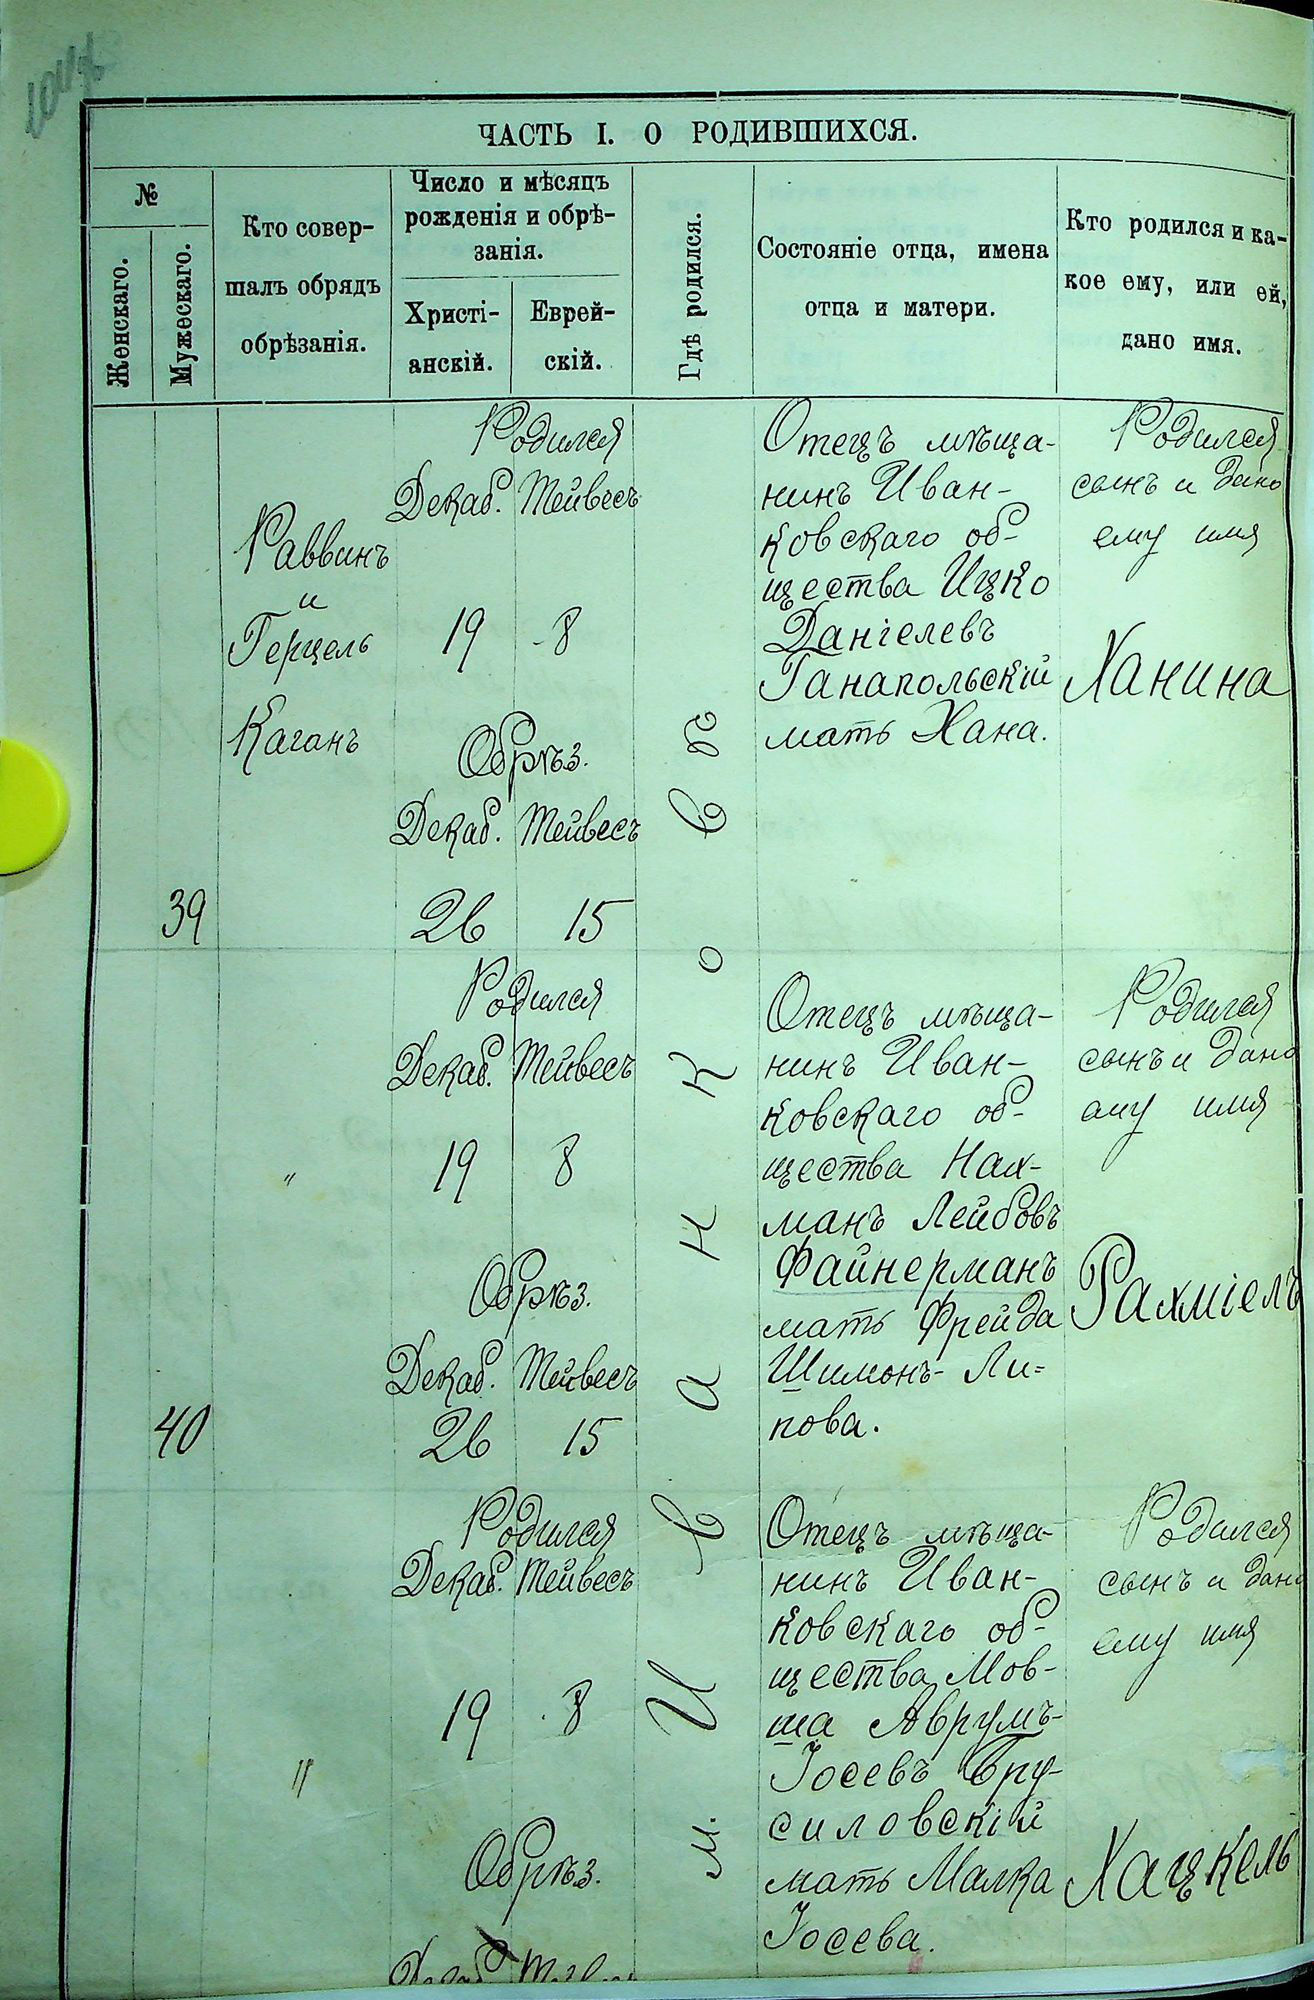 ЧАСТЬ I. О РОДИВШИХСЯ.
№
Женскаго.
Мужескаго.
Кто совер-
шалъ обрядъ
обрѣзанія.
Число и мѣсяцъ
рожденія и обрѣ-
занія.
Христі-
анскій.
Еврей-
скій.
Гдѣ родился.
Состояніе отца, имена
отца и матери.
Кто родился и ка-
кое ему, или ей,
дано имя.
М. Иванковѣ
39
Раввинъ
и
Герцель
Каганъ
Родился
Декаб. Тейвесъ
19 8
Обрѣз.
Декаб. Тейвесъ
26 15
Отецъ мѣща-
нинъ Иван-
ковскаго об-
щества Ицко
Даніелевъ
Ганапольскій
мать Хана.
Родился
сынъ и дано
ему имя
Ханина
40
"
Родился
Декаб. Тейвесъ
19 8
Обрѣз.
Декаб. Тейвесъ
26 15
Отецъ мѣща-
нинъ Иван-
ковскаго об-
щества Нах-
манъ Лейбовъ
Файнерманъ
мать Фрейда
Шимонъ-Ли-
пова.
Родился
сынъ и дано
ему имя
Рахміелъ
"
Родился
Декаб. Тейвесъ
19 8
Обрѣз.
Отецъ мѣща-
нинъ Иван-
ковскаго об-
щества Мов-
ша Аврумъ-
Іосевъ Бру-
силовскій
мать Малка
Іосева.
Родился
сынъ и дано
ему имя
Хацкель